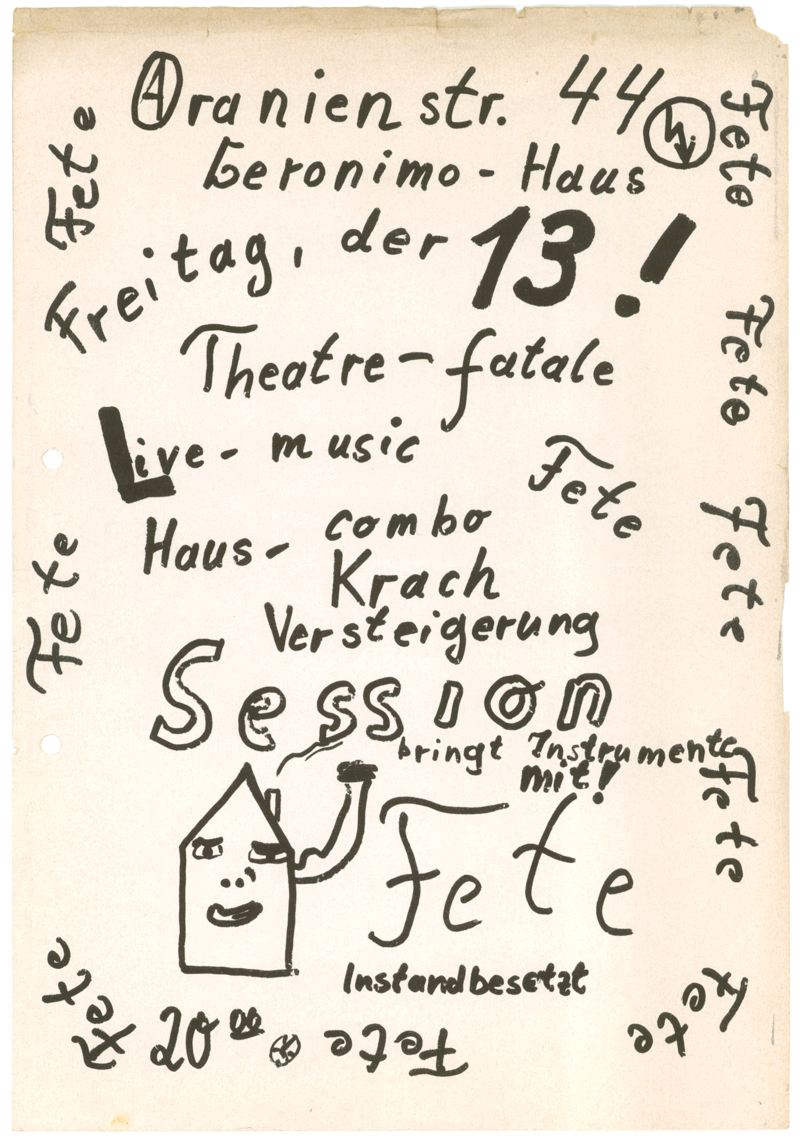 Oranienstr. 44
Geronimo-Haus
Freitag, der 13!
Theatre-fatale
Live-music
Haus-combo
Krach
Versteigerung
Session
bringt Instrumente
mit!
Fete
Instandbesetzt
20⁰⁰
Fete
Fete
Fete
Fete
Fete
Fete
Fete
Fete
Fete
Fete